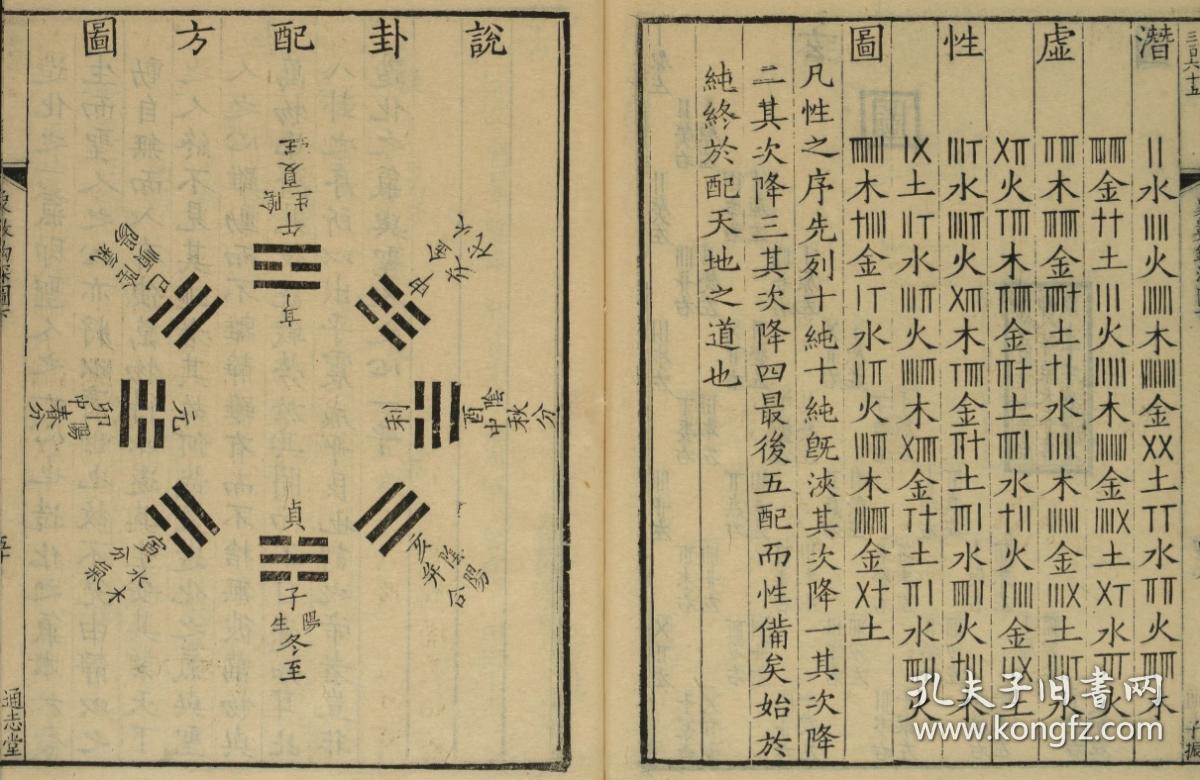 三百六十五
潛虛性圖
水火木金土水火木
金土火木金土水火
木金土水木金土水
火木金土水火金土
水火木金土水火木
土水火木金土水火
木金水火木金土
凡性之序先列十純十純旣浹其次降一其次降
二其次降三其次降四最後五配而性備矣始於
純終於配天地之道也
說卦配方圖
午
陰生夏至
申
利
酉
陰中秋分
亥
陰陽合并
貞
子
陽生冬至
寅
水木分氣
元
卯
陽中春分
巳
通志堂
孔夫子旧书网
www.kongfz.com